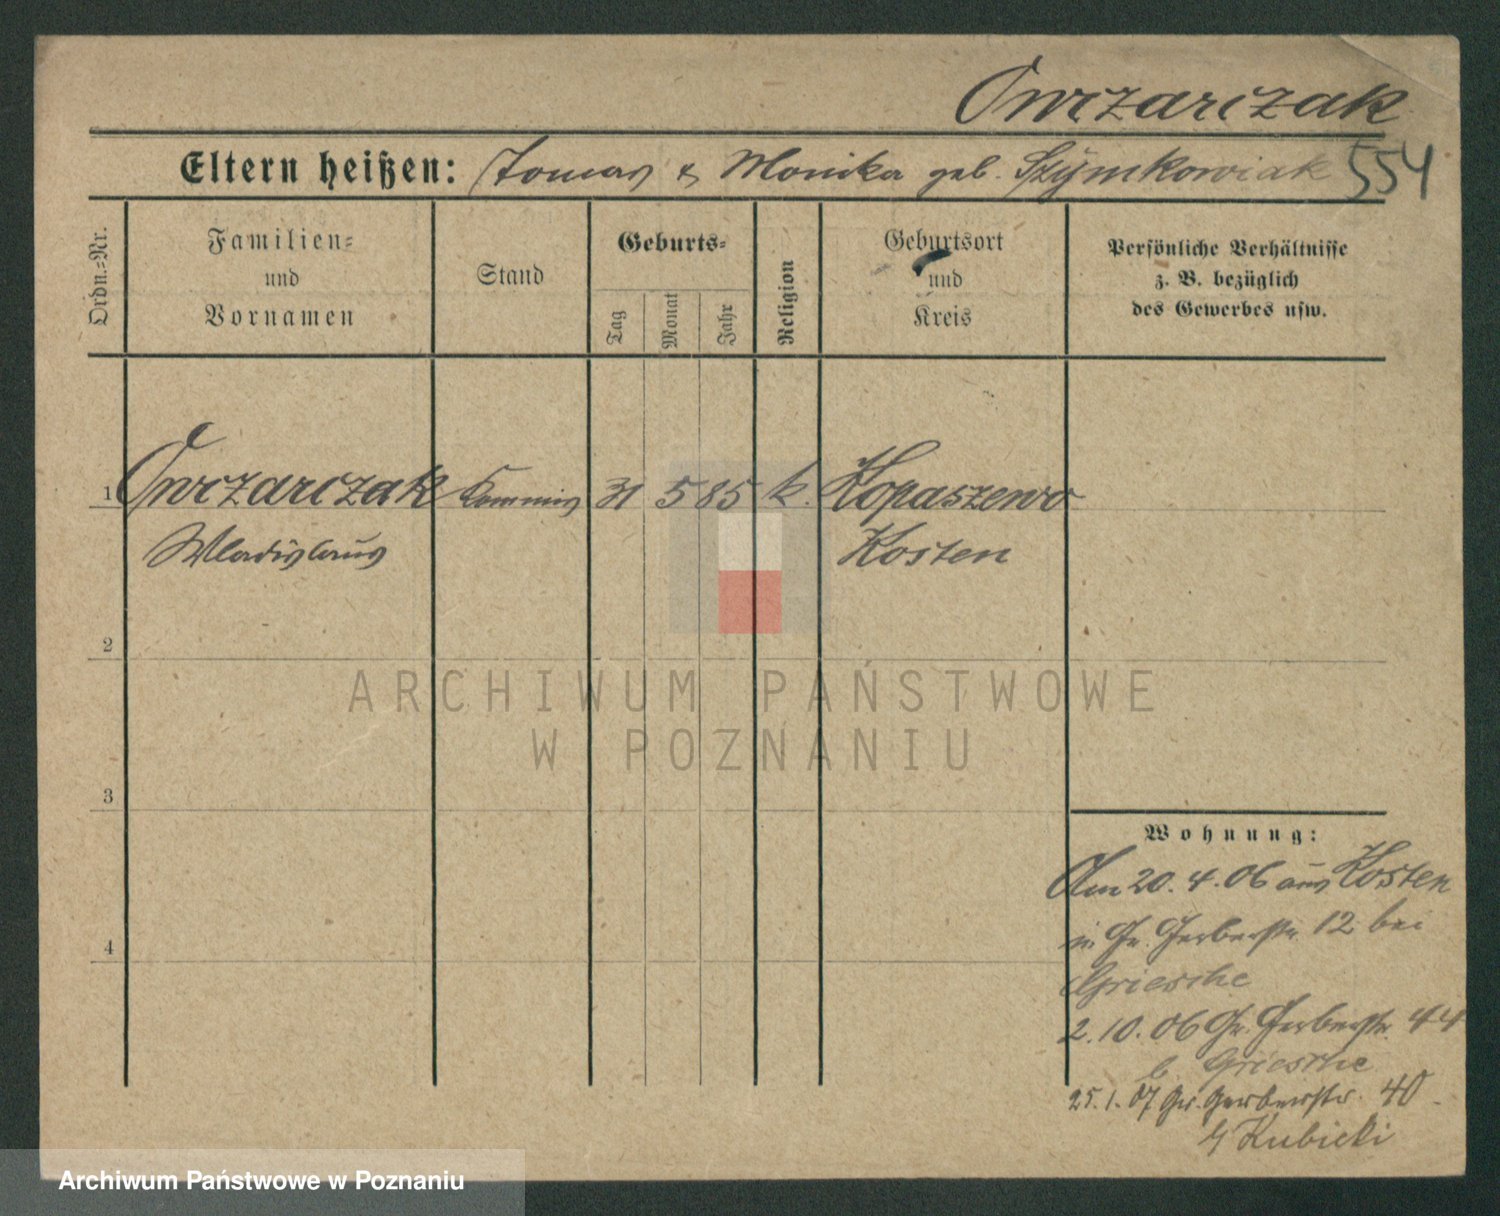 Owczarczak
Eltern heißen: Tomas & Monika geb. Szymkowiak 554
Ordn.-Nr.
Familien-
und
Vornamen
Stand
Geburts-
Tag
Monat
Jahr
Religion
Geburtsort
und
Kreis
Persönliche Verhältnisse
z. B. bezüglich
des Gewerbes usw.
1 Owczarczak Commis 31 5 85 k. Kopaszewo
Wladislaus Kosten
2
ARCHIWUM PAŃSTWOWE
W POZNANIU
3
Wohnung:
Am 20. 4. 06 aus Kosten
n. Gr. Gerberstr. 12 bei
Griesche
4
2. 10. 06 Gr. Gerberstr. 44
b. Griesche
25. 1. 07 Gr. Gerberstr. 40
b/ Kubicki
Archiwum Państwowe w Poznaniu